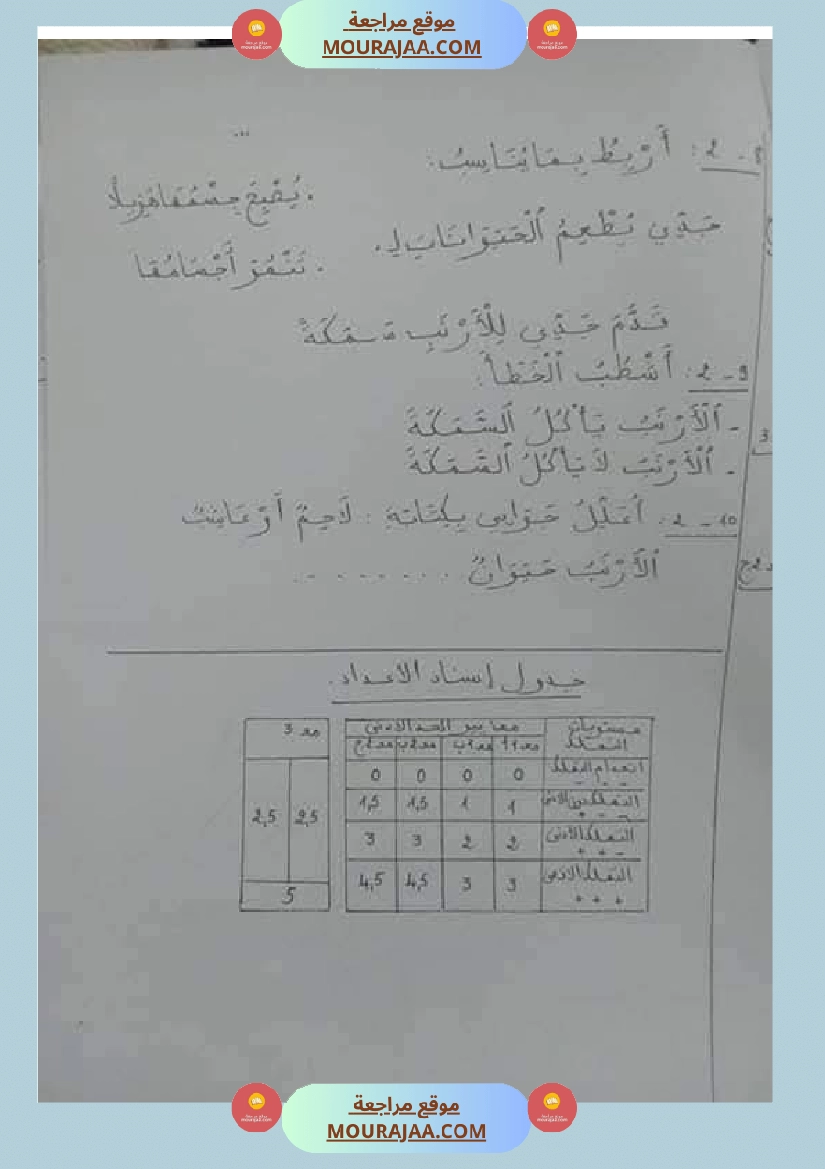 موقع مراجعة
MOURAJAA.COM
2-8: أَرْبِطُ بِمَا يُنَاسِبُ:
. يُصْبِحُ جِسْمُهَا هَزِيلًا
جَدِّي يُطْعِمُ ٱلْحَيَوَانَاتِ لِـ .
. تَنْمُوَ أَجْسَامُهَا
قَدَّمَ جَدِّي لِلْأَرْنَبِ سَمَكَةً
2-9: أَشْطُبُ ٱلْخَطَأَ:
- ٱلْأَرْنَبُ يَأْكُلُ ٱلسَّمَكَةَ
- ٱلْأَرْنَبُ لَا يَأْكُلُ ٱلسَّمَكَةَ
2-10: أُعَلِّلُ جَوَابِي بِكِتَابَةِ: لَاحِمٌ أَوْ عَاشِبٌ
ٱلْأَرْنَبُ حَيَوَانٌ . . . . . . . .
جدول إسناد الأعداد.
مستويات التملك معايير الحد الأدنى مع 3
مع 1أ مع 1ب مع 2ب مع 2ج
انعدام التملك - - - 0 0 0 0
التملك دون الأدنى + - - 1 1 1,5 1,5 2,5 2,5
التملك الأدنى + + - 2 2 3 3
التملك الأقصى + + + 3 3 4,5 4,5 5
موقع مراجعة
MOURAJAA.COM